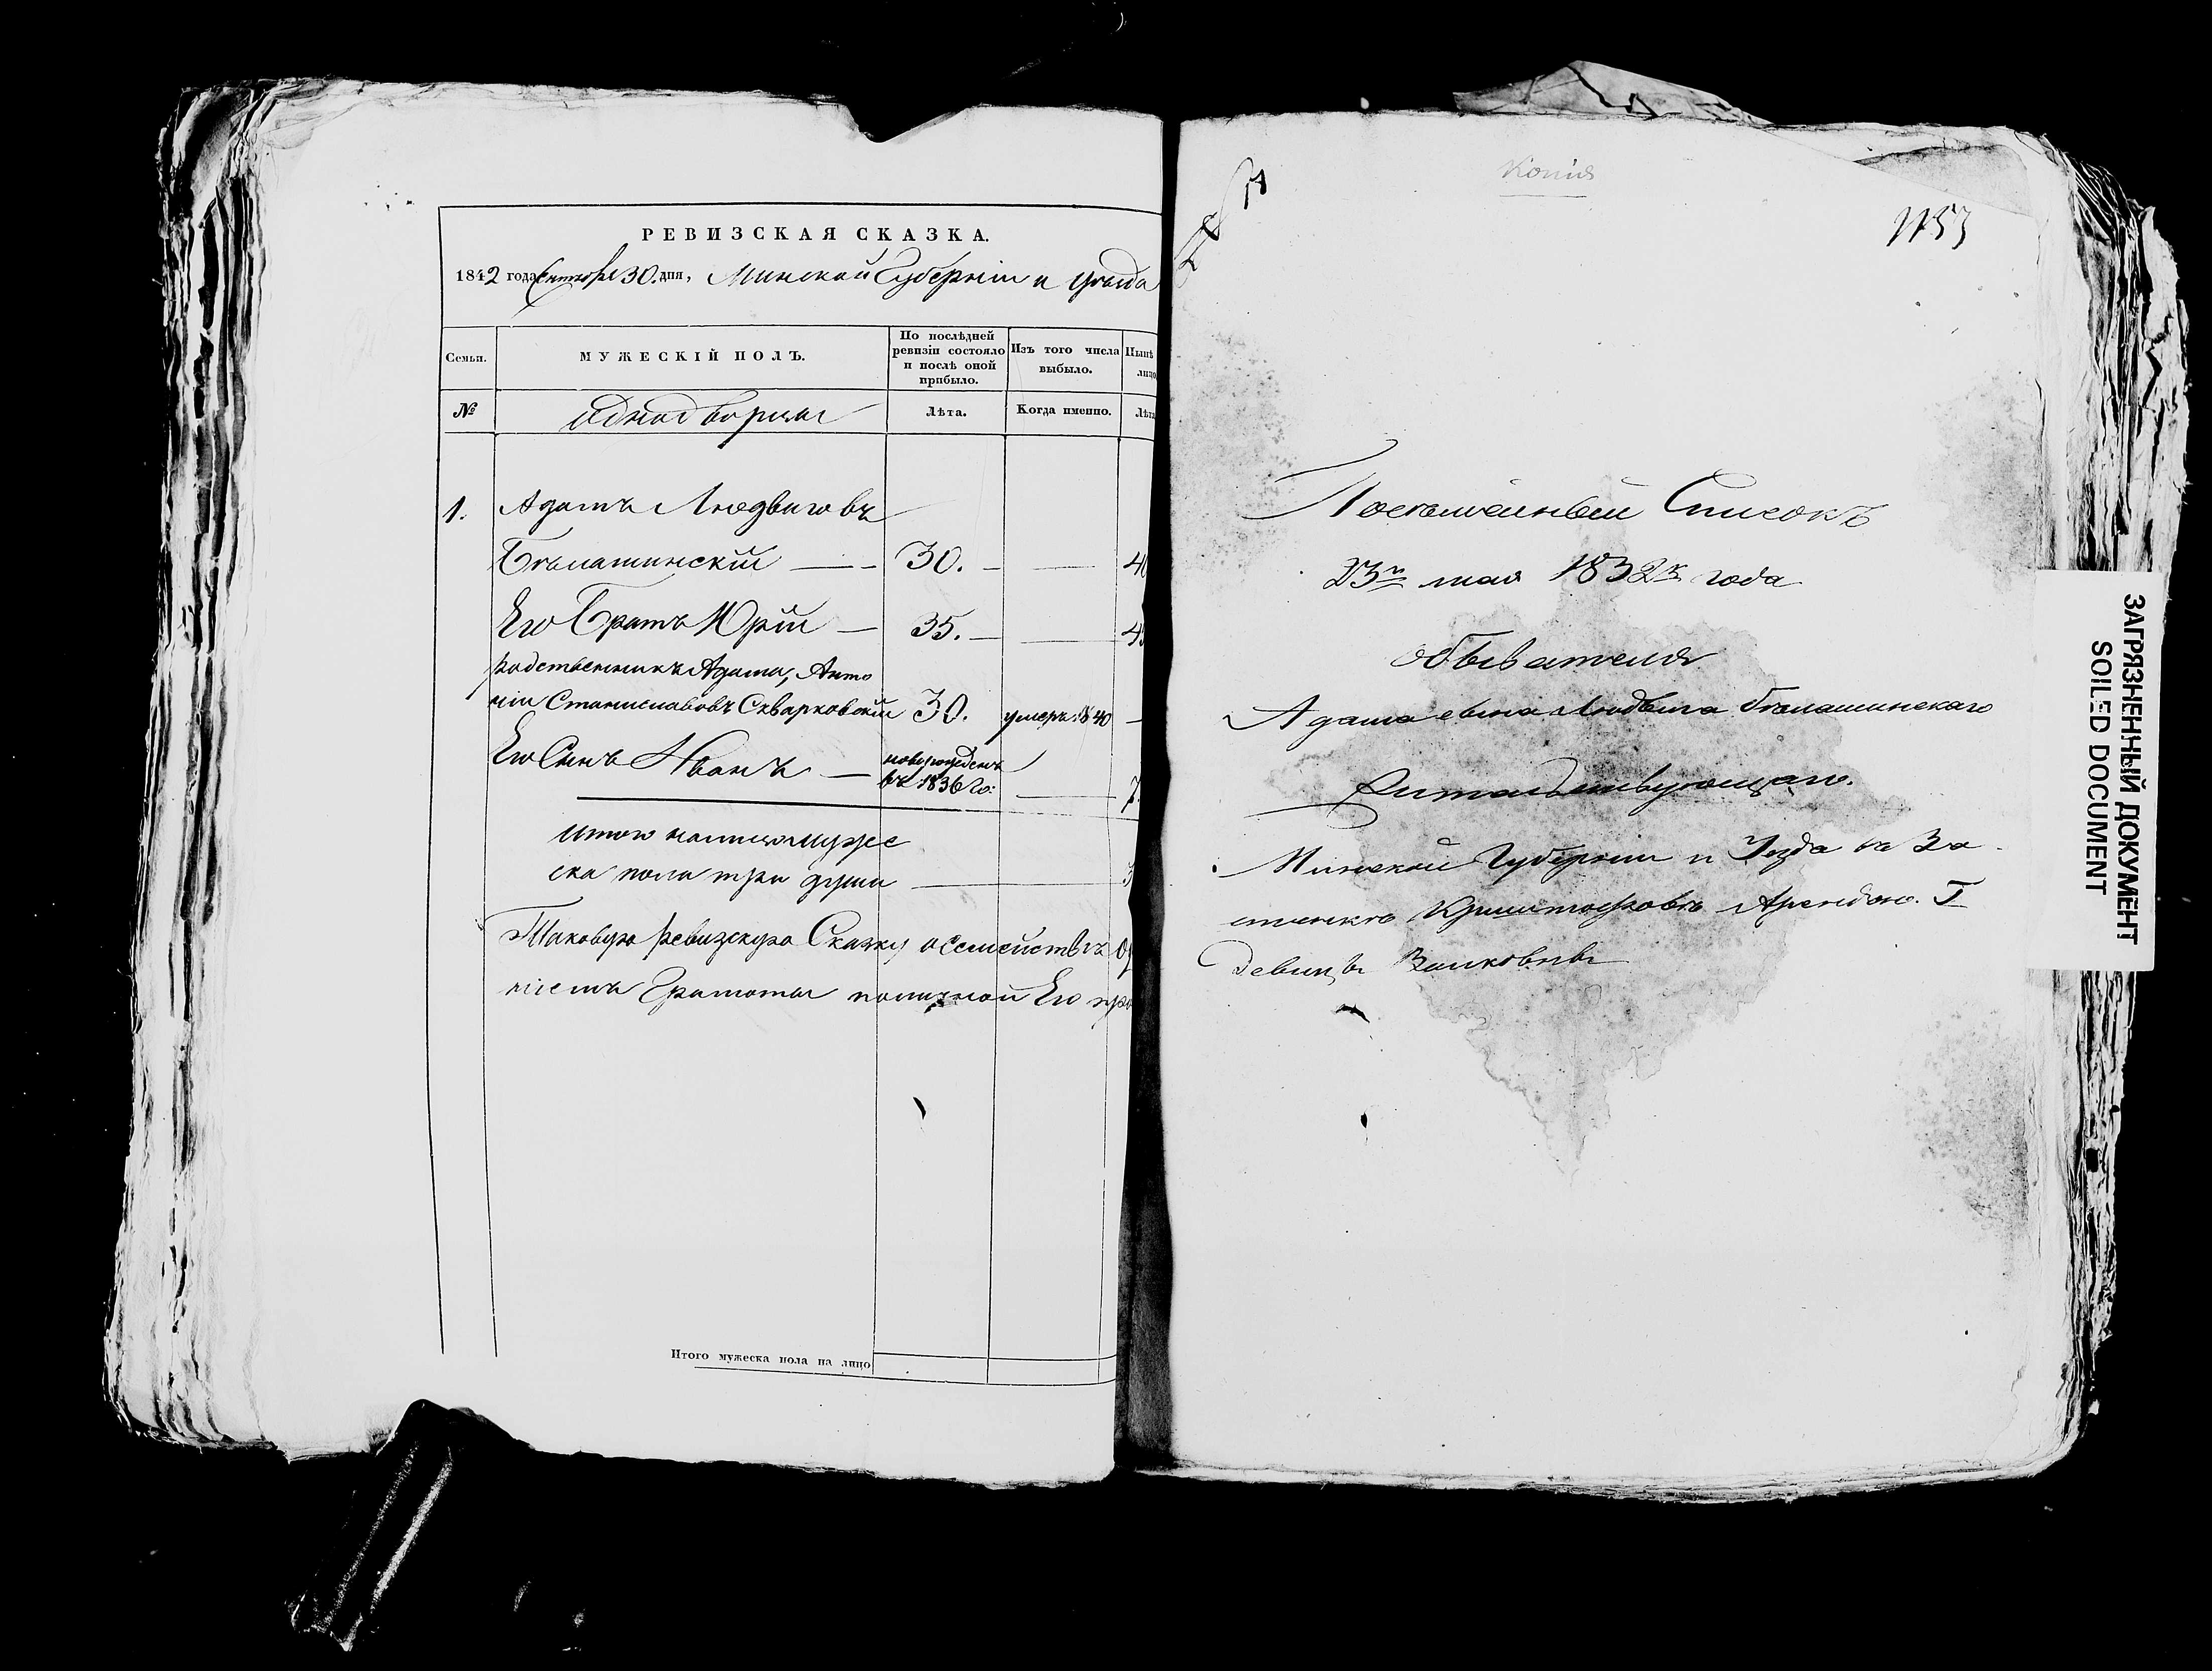 РЕВИЗСКАЯ СКАЗКА.
1842 года Сентября 30. дня, Минской Губерніи и уѣзда
Семьи.
МУЖЕСКІЙ ПОЛЪ.
По послѣдней ревизіи состояло и послѣ оной прибыло.
Изъ того числа выбыло.
Нынѣ лицо
№
однодворцы
Лѣта.
Когда именно.
Лѣта
1. Адамъ Людвиговъ
Бѣлашинскій — 30. — —
Его Братъ Юрій — 35. — —
родственникъ Адама, Анто
ній Станиславовъ Скварковскій 30. умеръ 1840 —
Его Сынъ Иванъ — новорожденъ въ 1836 го: — 7.
итого налицо мужес
ка пола три души — 3
Таковую ревизскую Сказку о семействѣ
ніемъ Грамоты поличной Его
Итого мужеска пола на лицо
Копія
1153
Посемейный Списокъ
23го мая 1832го года
обывателя
Адама сына Людвига Бѣлашинскаго
Жительствующаго.
Минской Губерніи и Уезда въ За
стенкѣ Криштофовѣ Арендою. Г
девицы Валковны
ЗАГРЯЗНЕННЫЙ ДОКУМЕНТ
SOILED DOCUMENT